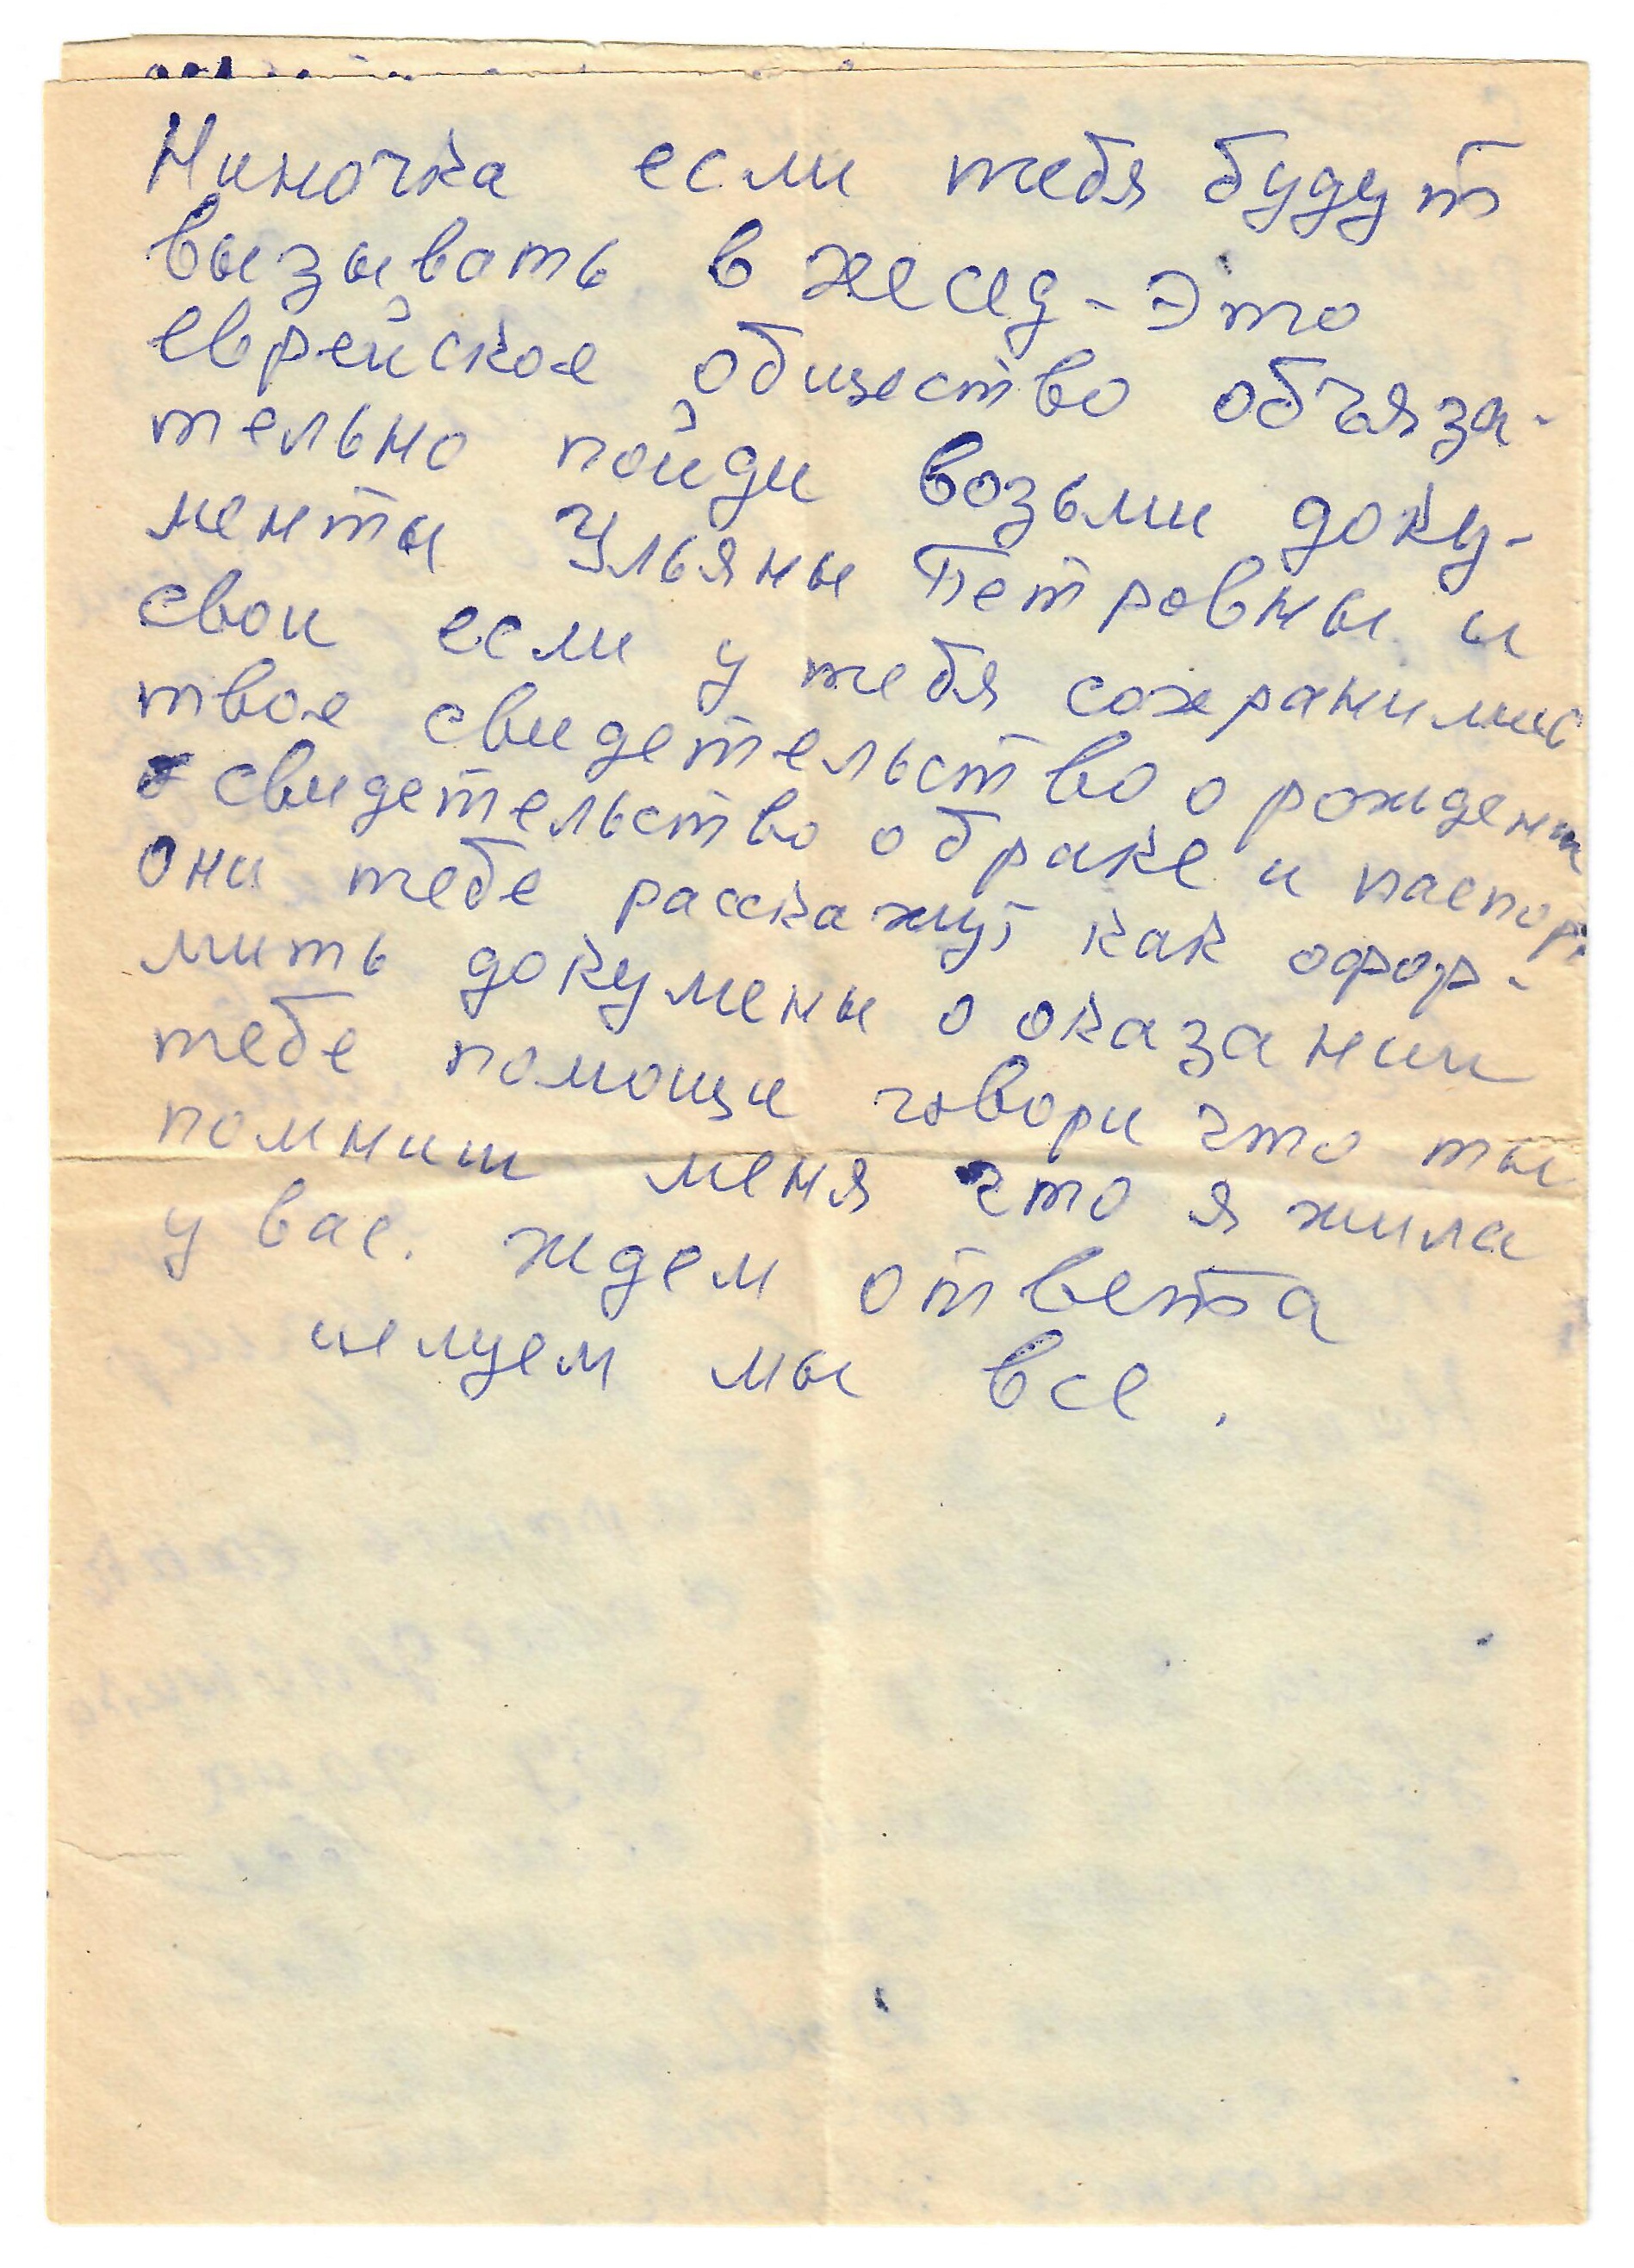 Ниночка если тебя будут
вызывать в хесед - это
еврейское общество объяза-
тельно пойди возьми доку-
менты Ульяны Петровны и
свои если у тебя сохранилис
твое свидетельство о рождени
свидетельство о браке и паспор
они тебе расскажут как офор-
мить докумены о оказании
тебе помощи говори что ты
помниш меня что я жила
у вас. ждем ответа
целуем мы все.